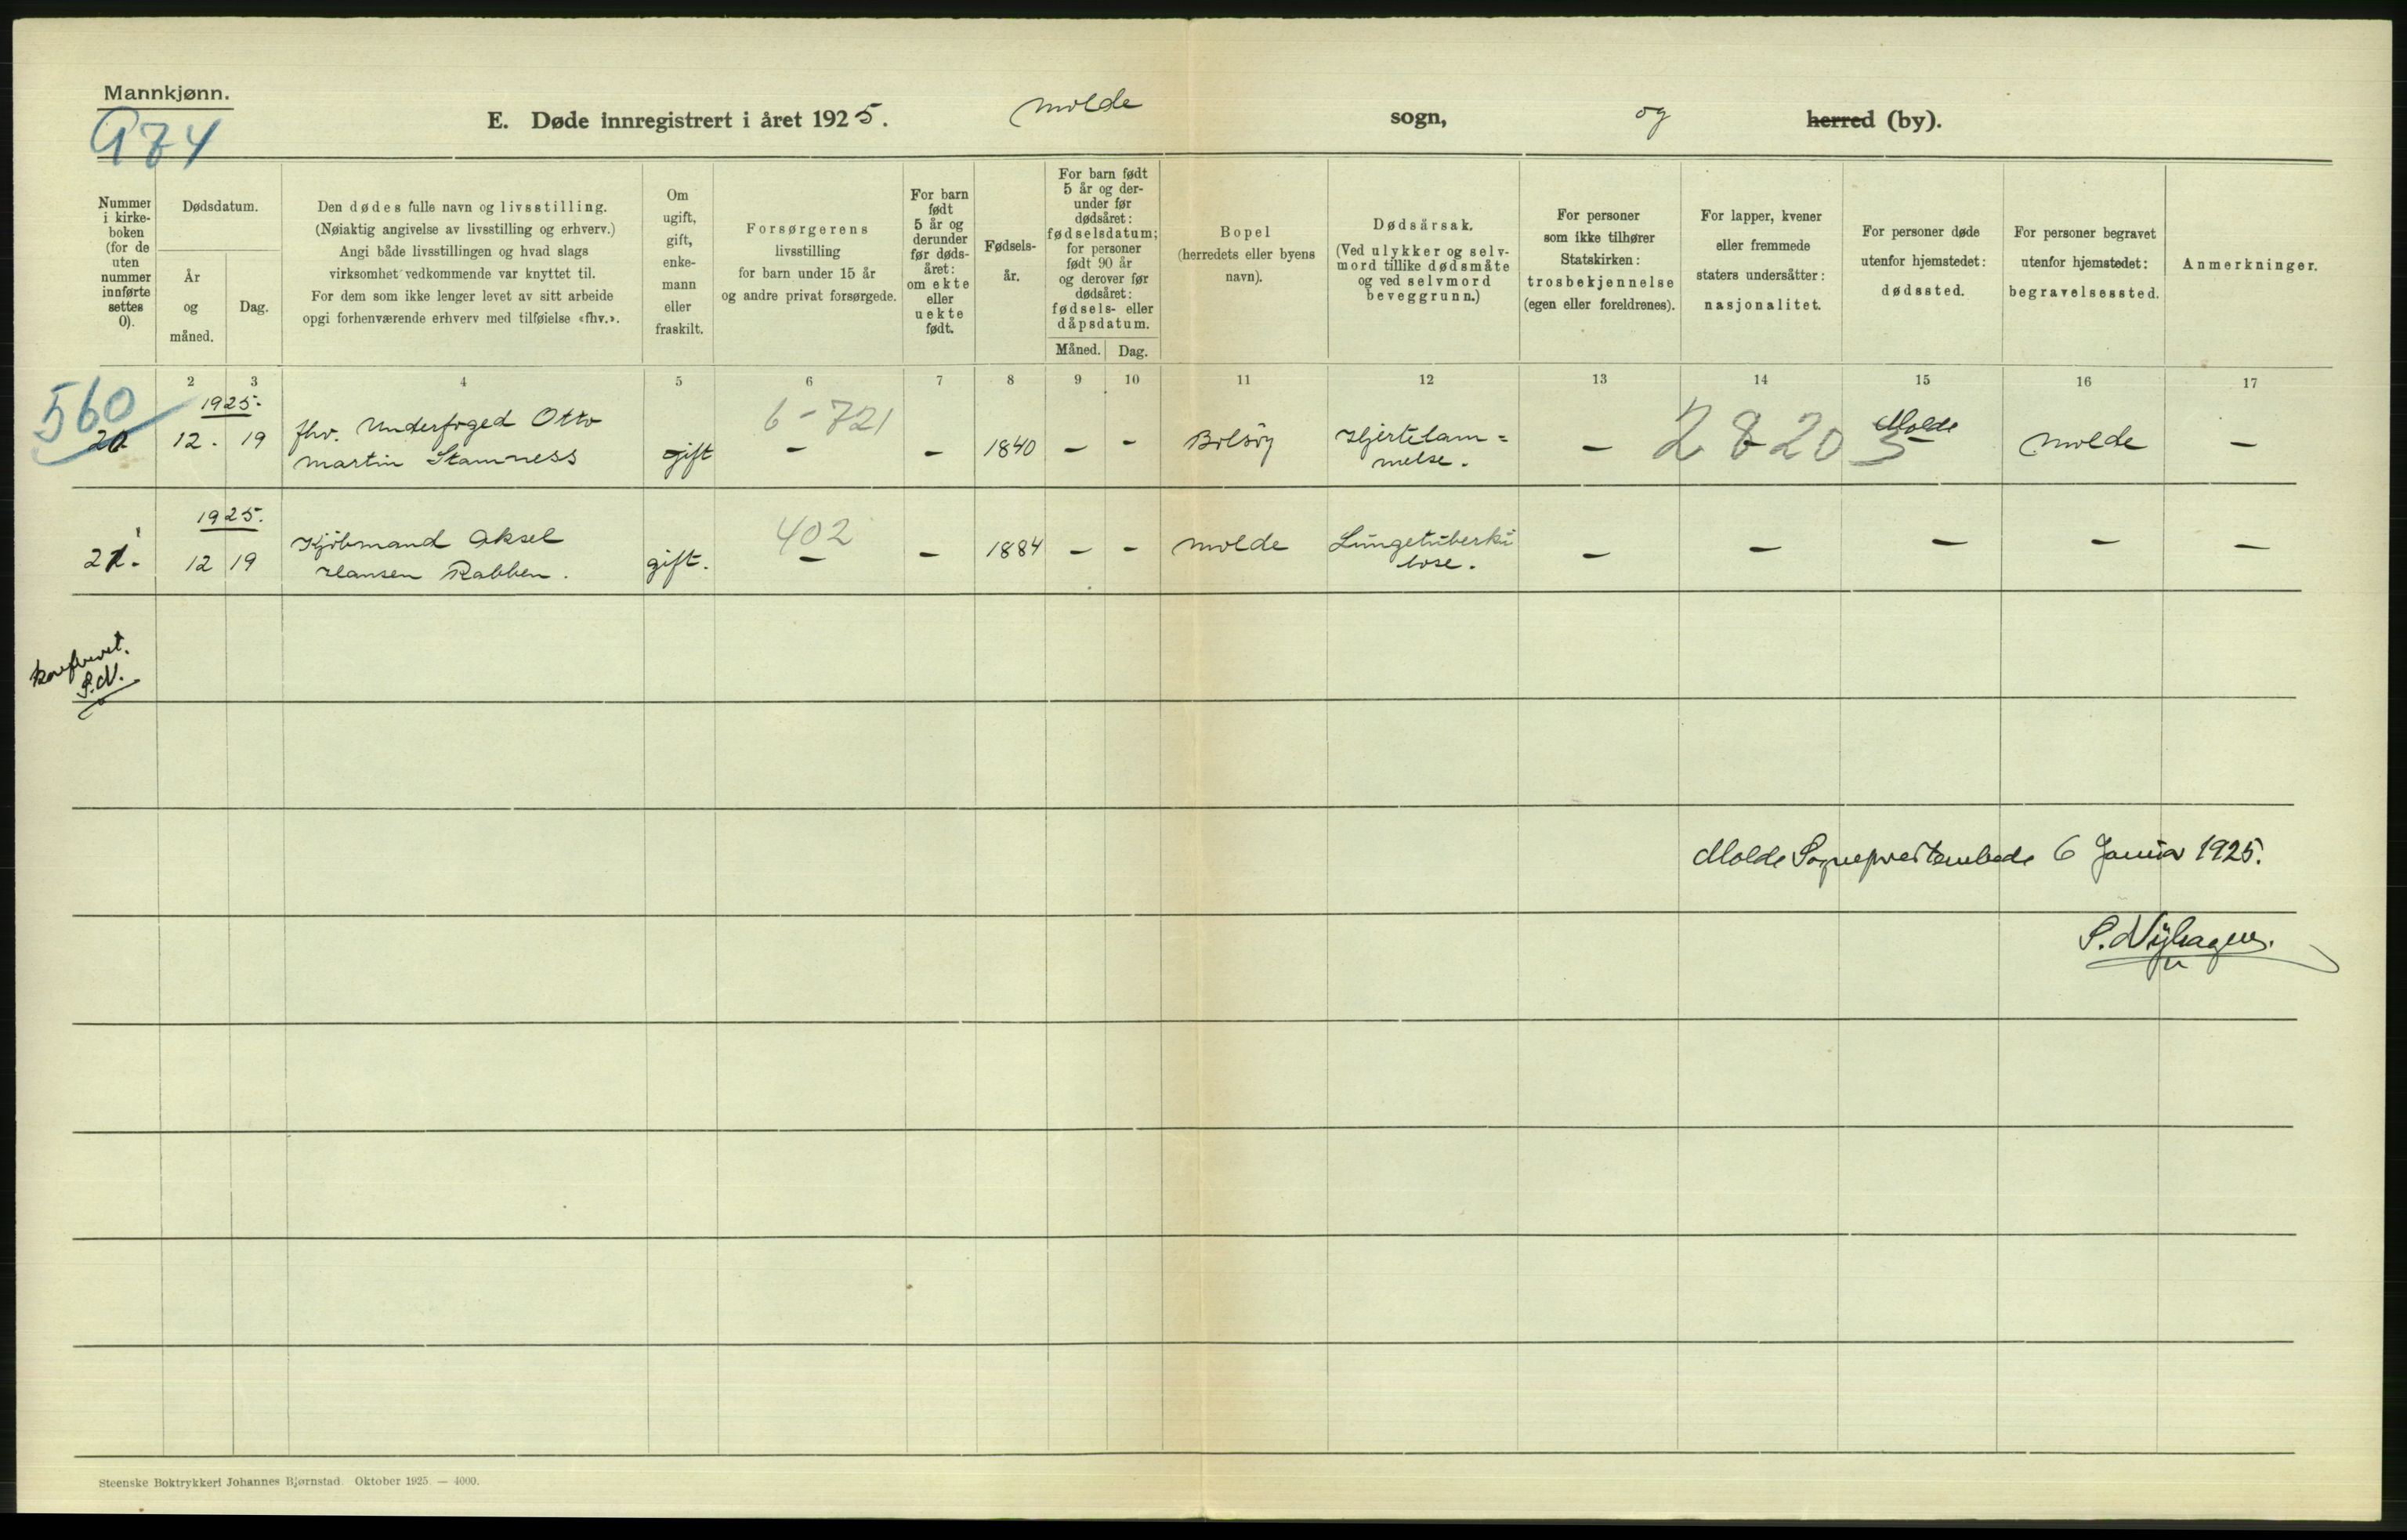 Mannkjønn.
974
E. Døde innregistrert i året 1925. Molde sogn, og herred (by).
Nummer i kirkeboken (for de uten nummer innførte settes 0).
Dødsdatum.
År og måned.
Dag.
Den dødes fulle navn og livsstilling.
(Nøiaktig angivelse av livsstilling og erhverv.)
Angi både livsstillingen og hvad slags
virksomhet vedkommende var knyttet til.
For dem som ikke lenger levet av sitt arbeide
opgi forhenværende erhverv med tilføielse «fhv.».
Om ugift, gift, enkemann eller fraskilt.
Forsørgerens
livsstilling
for barn under 15 år
og andre privat forsørgede.
For barn født 5 år og derunder før dødsåret: om ekte eller uekte født.
Fødselsår.
For barn født 5 år og derunder før dødsåret: fødselsdatum; for personer født 90 år og derover før dødsåret: fødsels- eller dåpsdatum.
Måned. Dag.
Bopel
(herredets eller byens
navn).
Dødsårsak.
(Ved ulykker og selvmord tillike dødsmåte og ved selvmord beveggrunn.)
For personer
som ikke tilhører
Statskirken:
trosbekjennelse
(egen eller foreldrenes).
For lapper, kvener
eller fremmede
staters undersåtter:
nasjonalitet.
For personer døde
utenfor hjemstedet:
dødssted.
For personer begravet
utenfor hjemstedet:
begravelsessted.
Anmerkninger.
2 3 4 5 6 7 8 9 10 11 12 13 14 15 16 17
560
1925.
20 12. 19 fhv. Underfoged Otto Martin Stamness gift 6-721 – – 1840 – – Bolsøy Hjertelam=
melse. – 2820 3 – Molde – Molde –
1925.
21. 12 19 Kjøbmand Aksel Hansen Rabben. gift. 402 – – 1884 – – Molde Lungetuberku
lose. – – – – –
konferert.
S.N.
Molde Sogneprestembede 6 Januar 1925.
S. Nyhagen.
Steenske Boktrykkeri Johannes Bjørnstad. Oktober 1925. — 4000.